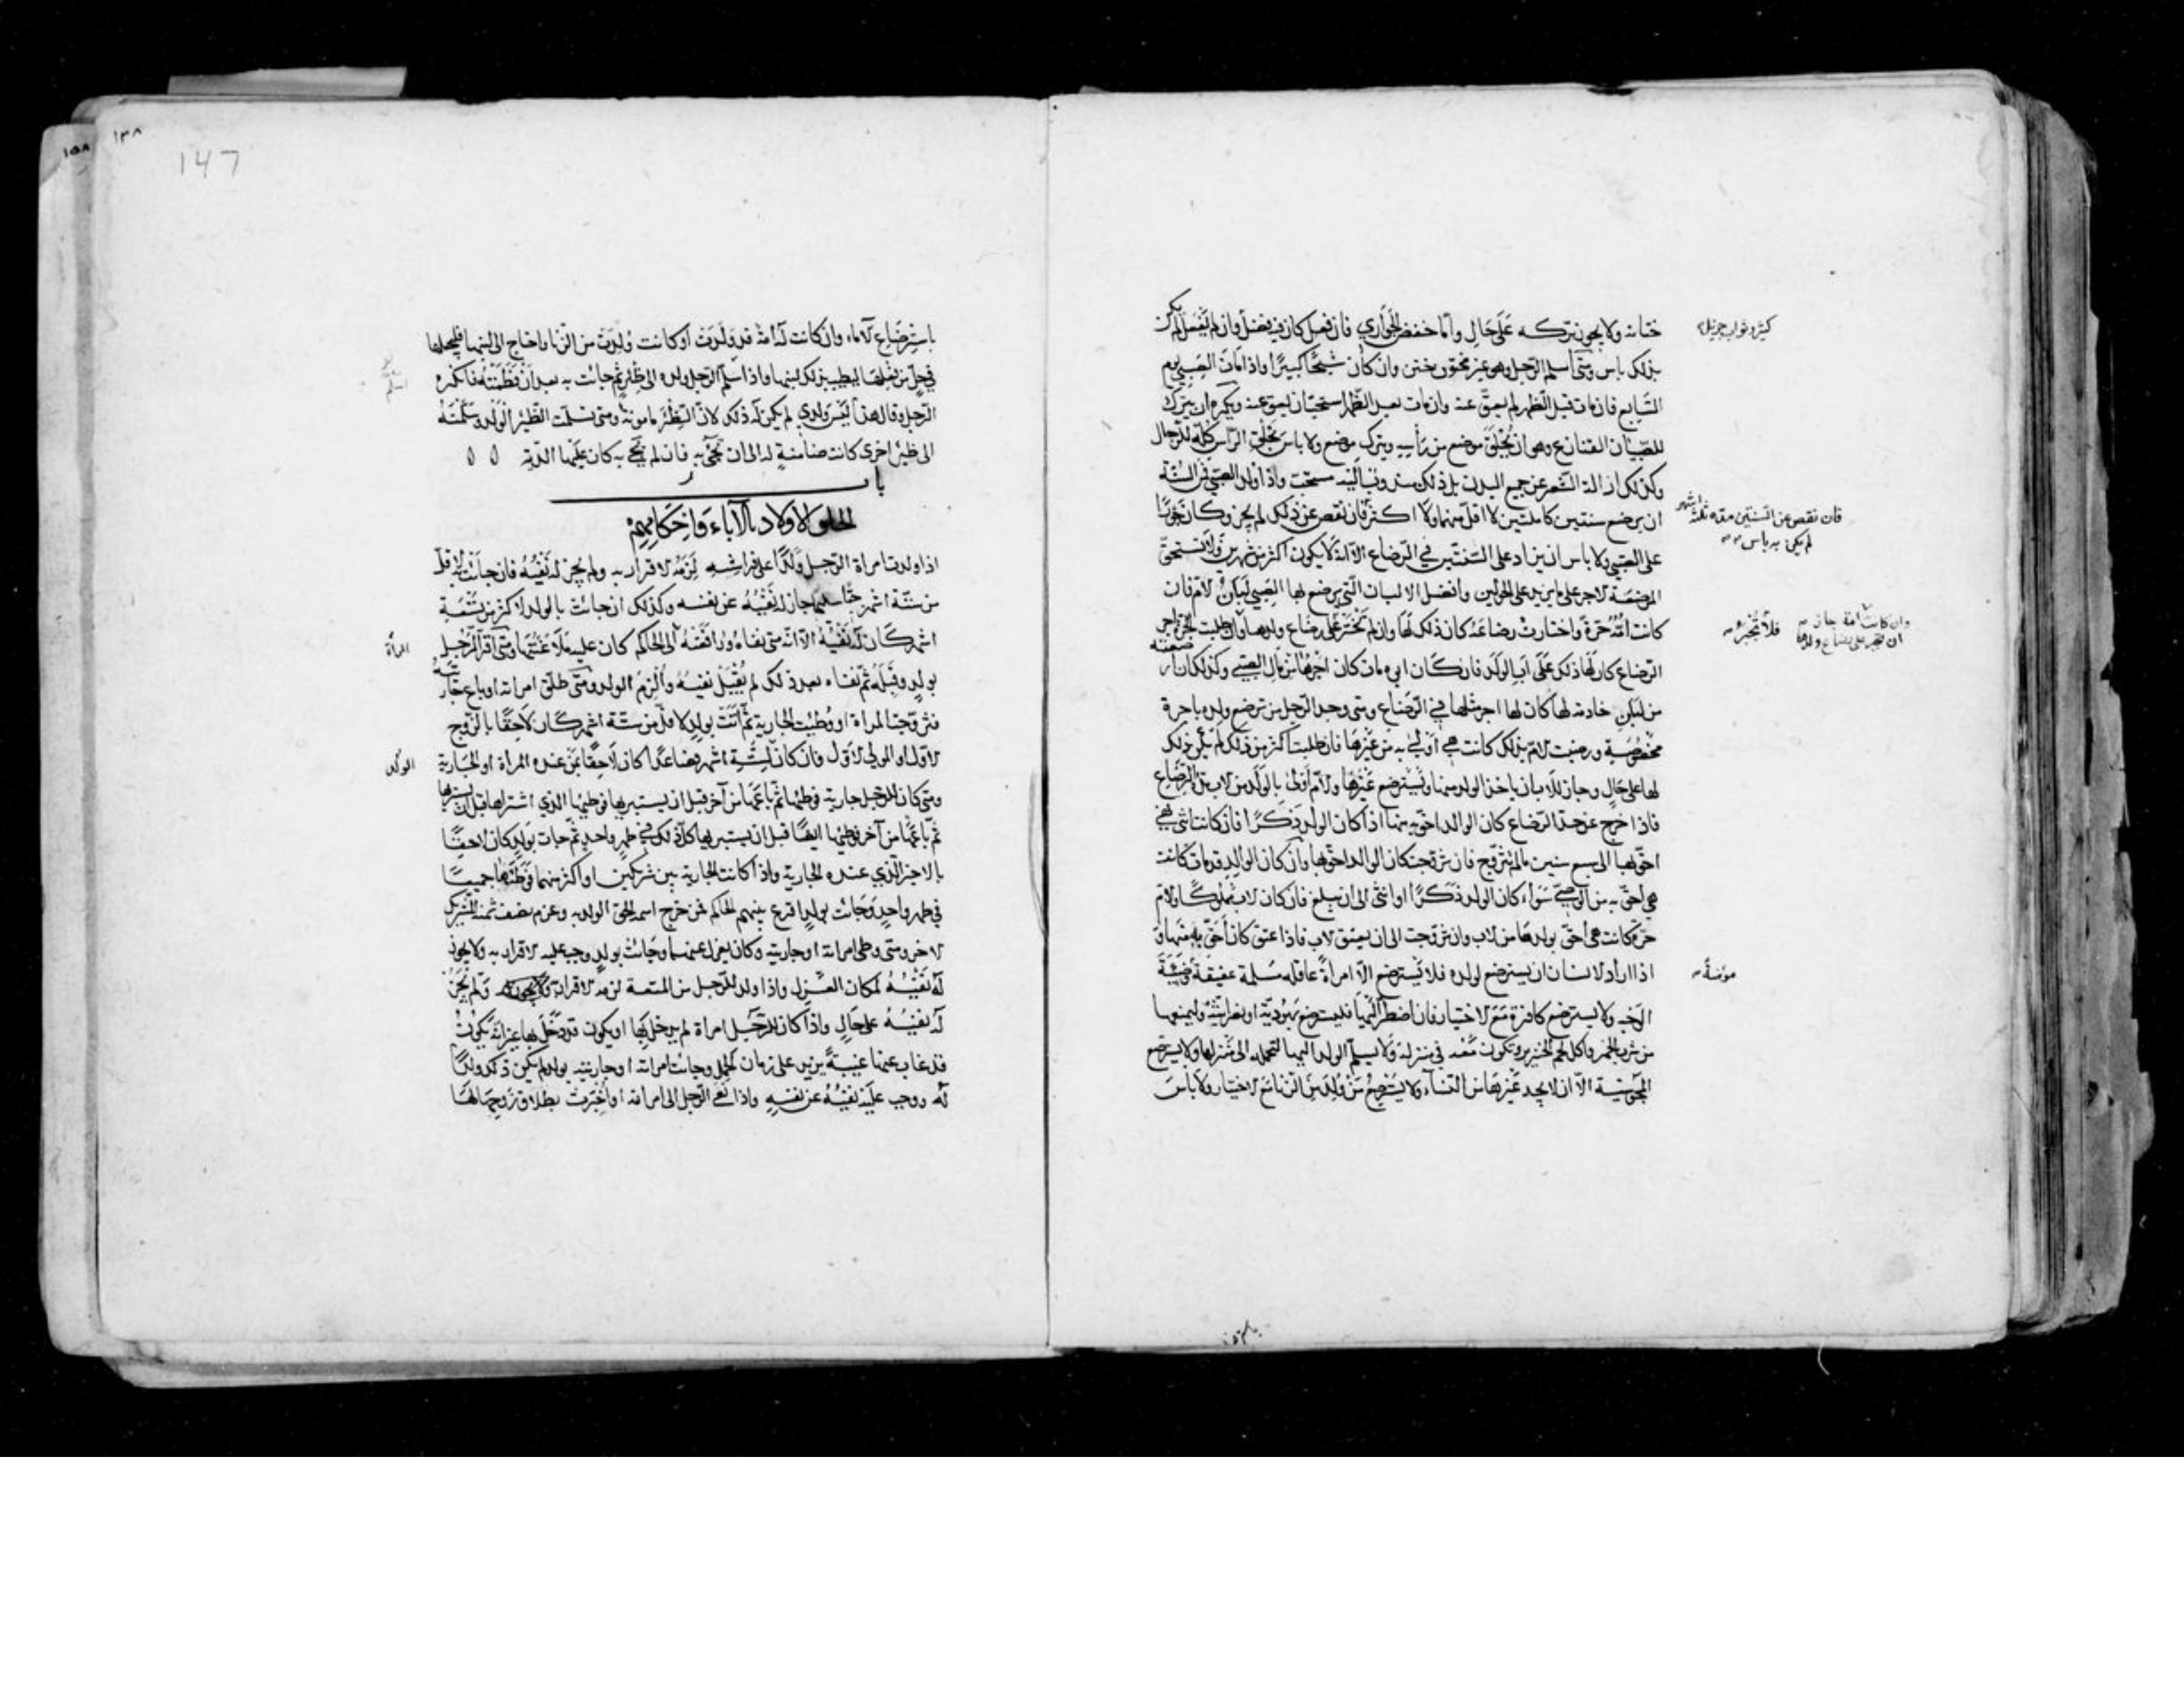 ختانه ولا يجوز تركه على حال واما خفض الجواري فان فعل كان فيه فضل وان لم يفعل لم يكن
بذلك باس ومتى اسلم الرجل وهو غير مختون ختن وان كان شيخا كبيرا واذا مات الصبي يوم
السابع فان مات قبل الظهر لم يعق عنه وان مات بعد الظهر استحب ان يعق عنه ويكره ان يترك
للصبيان القنازع وهو ان يحلق موضع من رأسه ويترك موضع ولا باس بحلق الرأس كله للرجال
وكذلك ازالة الشعر عن جميع البدن بل ذلك مندوب اليه مستحب واذا ولد الصبي فمن السنة
ان يرضع سنتين كاملتين لا اقل منهما ولا اكثر فان نقص عن ذلك لم يجز وكان جورا
على الصبي ولا باس ان يزاد على السنتين في الرضاع الا انه لا يكون اكثر من شهرين ولا تستحق
المرضعة الاجر على ما يزيد على الحولين وافضل الالبان التي يرضع بها الصبي لبان الام فان
كانت امه حرة واختارت رضاعه كان ذلك لها وان لم تختر على رضاع ولدها وان طلبت اجر
الرضاع كان لها ذلك على اب الولد فان كان ابوه مات كان اجرها من مال الصبي وكذلك ان ارضعته
من لبن خادمة لها كان لها اجر مثلها في الرضاع ومتى وجد الرجل من ترضع ولده باجرة
مخصوصة ورضيت الام بذلك كانت هي اولى به من غيرها فان طلبت اكثر من ذلك لم يكن ذلك
لها على حال وجاز للاب ان ياخذ الولد منها ويسترضع غيرها والام اولى بالولد من الاب مدة الرضاع
فاذا خرج عن حد الرضاع كان الوالد احق به منها اذا كان الولد ذكرا فان كانت انثى فهي
احق بها الى سبع سنين ما لم تتزوج فان تزوجت كان الوالد احق بها وان كان الوالد قد مات كانت
هي احق به من الوصي سواء كان الولد ذكرا او انثى الى ان يبلغ فان كان الاب مملوكا والام
حرة كانت هي احق بولدها من الاب وان تزوجت الى ان يعتق الاب فاذا عتق كان احق به منها و
اذا اراد الانسان ان يسترضع لولده فلا يسترضع الا امراة عاقلة مسلمة عفيفة وضيئة
الوجه ولا يسترضع كافرة مع الاختيار فان اضطر اليها فليسترضع يهودية او نصرانية وليمنعها
من شرب الخمر واكل لحم الخنزير وتكون معه في منزله ولا يسلم الولد اليها لتحمله الى منزلها ولا يسترضع
المجوسية الا ان لا يجد غيرها من النساء ولا يسترضع من ولد من الزنا مع الاختيار ولا باس
فان نقص عن السنتين مدة ثلثة اشهر
لم يكن به باس
فلا تجبر
وان كانت امة جاز
ان تجبر على رضاع ولدها
باسترضاع الاماء وان كانت له امة قد ولدت او كانت ولدت من الزنا واحتاج الى لبنها فليجعلها
في حل من فعلها ليطيب بذلك لبنها واذا اسلم الرجل ولده الى ظئر ثم جاءت به بعد ان فطمته فانكره
الرجل وقال هذا ليس ولدي لم يكن له ذلك لان الظئر مامونة ومتى تسلمت الظئر الولد وسلمته
الى ظئر اخرى كانت ضامنة له الى ان تجئ به فان لم تجئ به كان عليها الدية
باب
الحاق الاولاد بالآباء واحكامهم
اذا ولدت امراة الرجل ولدا على فراشه لزمه الاقرار به ولم يجز له نفيه فان جاءت به لاقل
من ستة اشهر حيا سليما جاز له نفيه عن نفسه وكذلك ان جاءت بالولد لاكثر من تسعة
اشهر كان له نفيه الا انه متى نفاه ورافعته الى الحاكم كان عليه ملاعنتها ومتى اقر الرجل
بولد وقبله ثم نفاه بعد ذلك لم يقبل نفيه والزم الولد ومتى طلق امراته او باع جاريته
فتزوجت المراة او وطئت الجارية ثم اتت بولد لاقل من ستة اشهر كان لاحقا بالزوج
الاول او المولى الاول فان كان لستة اشهر فصاعدا كان لاحقا بمن عنده المراة او الجارية
ومتى كان للرجل جارية فوطئها ثم باعها من آخر قبل ان يستبرئها فوطئها الذي اشتراها قبل ان يستبرئها
ثم باعها من آخر فوطئها ايضا قبل ان يستبرئها كل ذلك في طهر واحد ثم جاءت بولد كان لاحقا
بالاخير الذي عنده الجارية واذا كانت الجارية بين شريكين او اكثر منهما فوطئاها جميعا
في طهر واحد وجاءت بولد اقرع بينهم الحاكم فمن خرج اسمه الحق الولد به وغرم نصف ثمنه للشريك
الاخر ومتى وطى امراته او جاريته وكان يعزل عنهما وجاءت بولد وجب عليه الاقرار به ولا يجوز
له نفيه لمكان العزل واذا ولد للرجل من المتعة لزمه الاقرار به ولم يجز
له نفيه على حال واذا كان للرجل امراة لم يدخل بها او يكون قد دخل بها غير انه يكون
قد غاب عنها غيبة يزيد على زمان الحمل وجاءت امراته او جاريته بولد لم يكن ذلك ولدا
له ووجب عليه نفيه عن نفسه واذا نعي الرجل الى امراته او اخبرت بطلاق زوجها لها
المراة
الولد
147
١٣٨
١٥٨